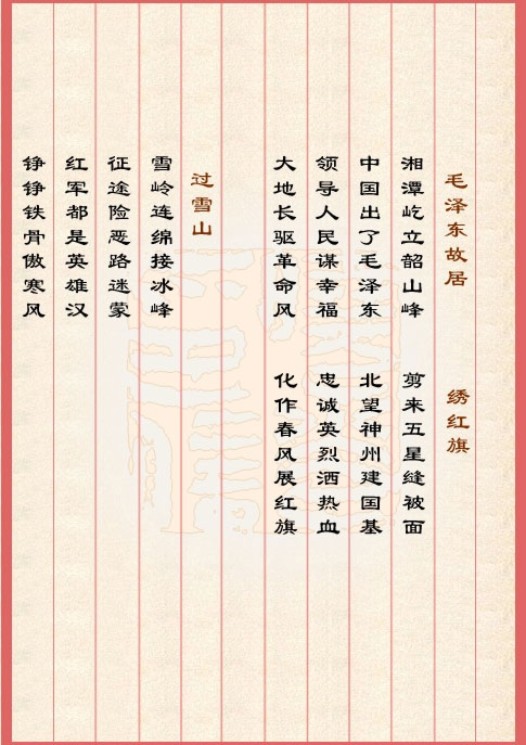 毛泽东故居
湘潭屹立韶山峰
中国出了毛泽东
领导人民谋幸福
大地长驱革命风
绣红旗
剪来五星缝被面
北望神州建国基
忠诚英烈洒热血
化作春风展红旗
过雪山
雪岭连绵接冰峰
征途险恶路迷蒙
红军都是英雄汉
铮铮铁骨傲寒风